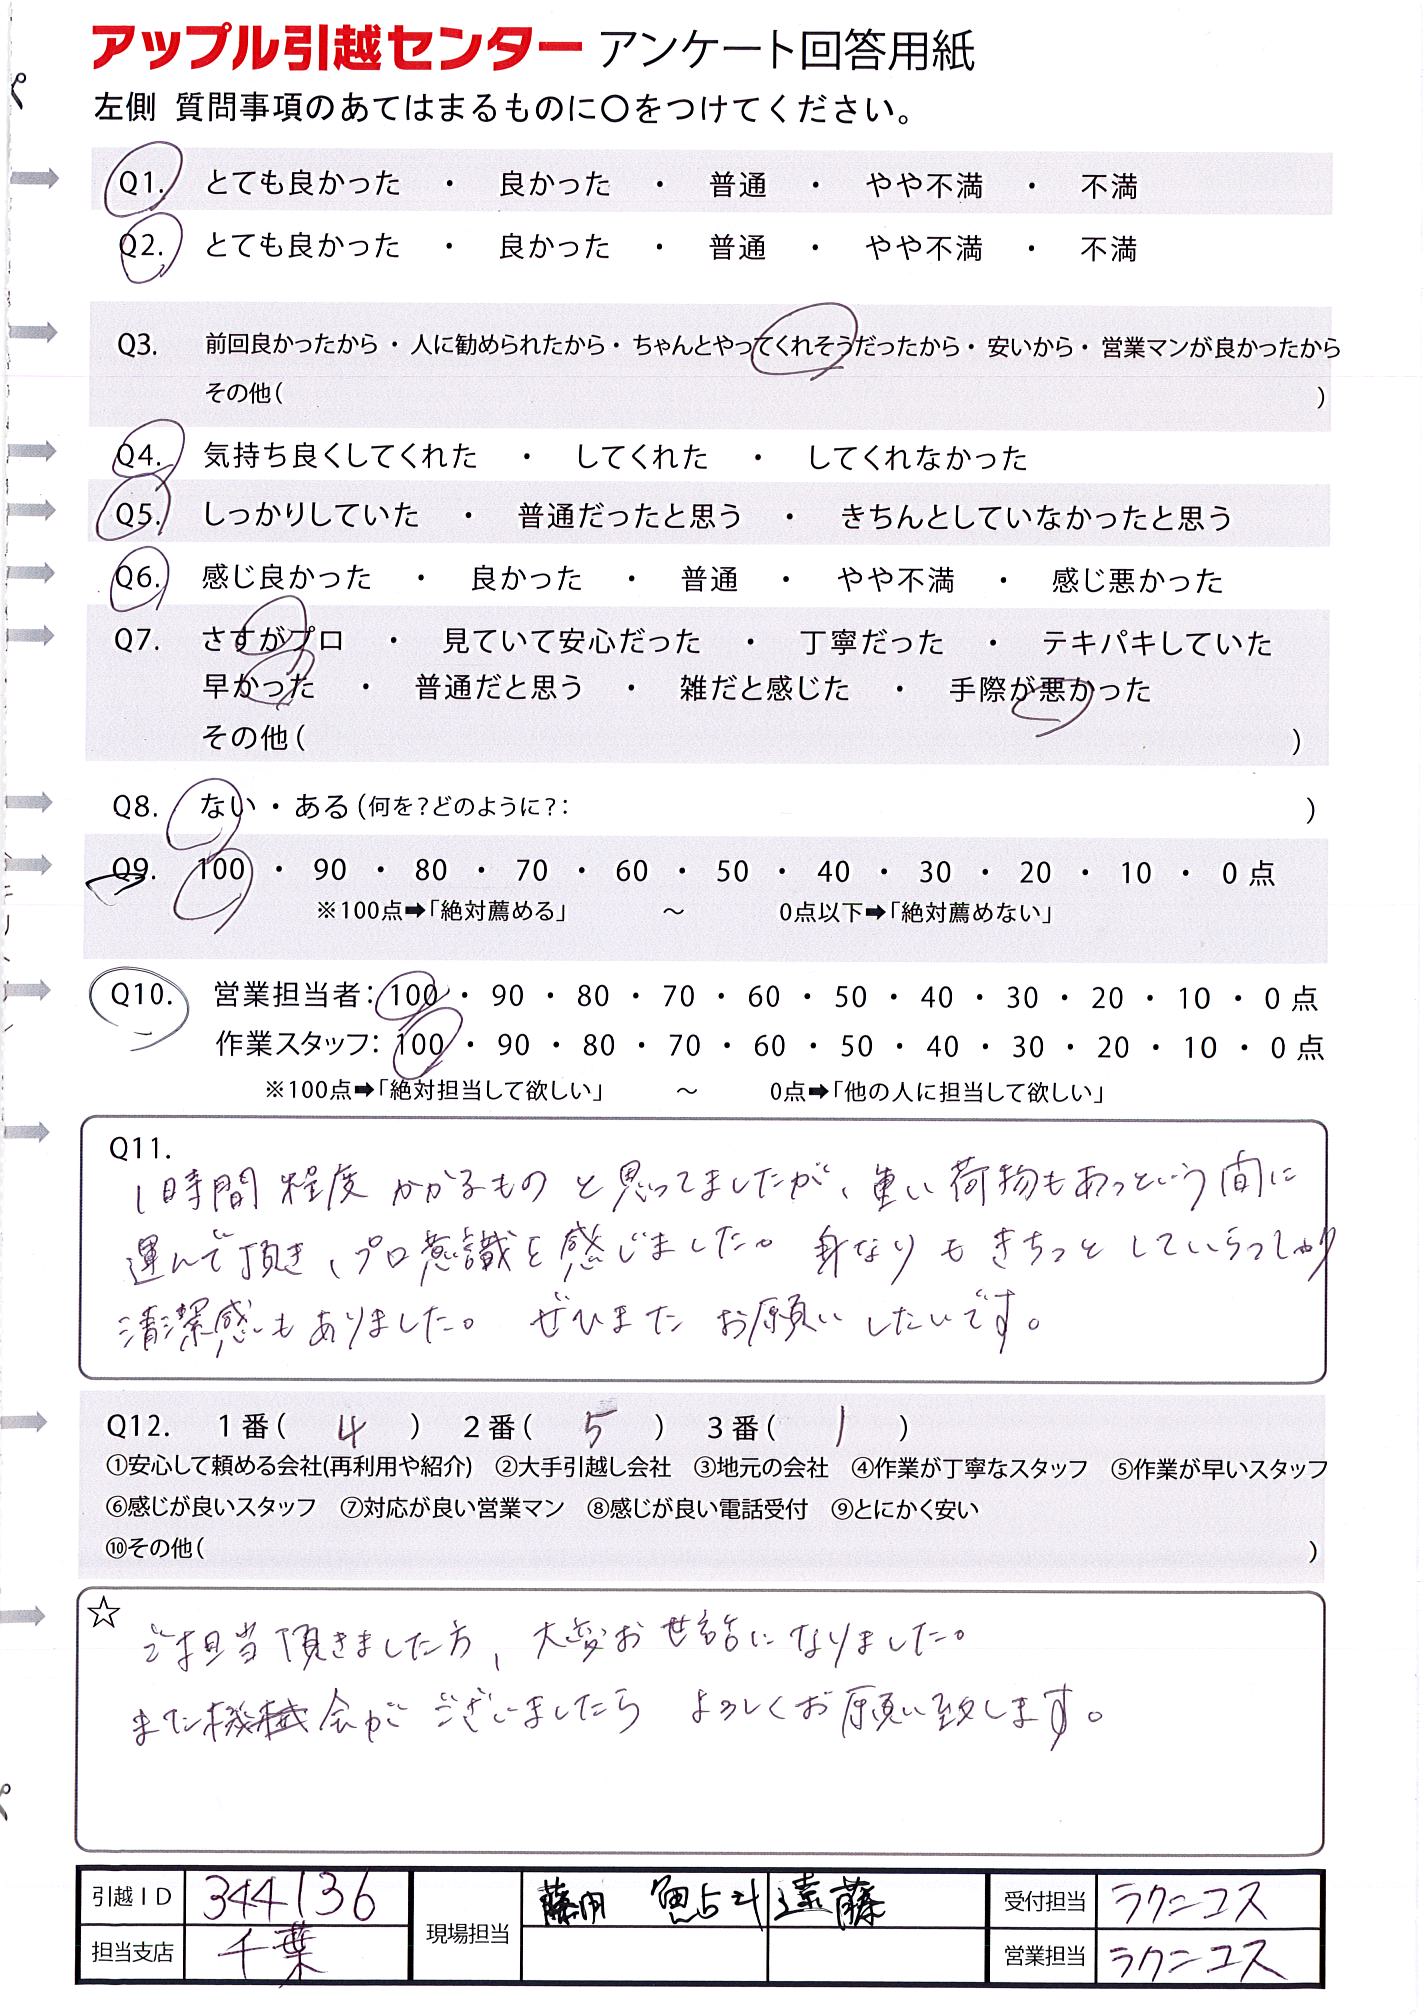 アップル引越センター アンケート回答用紙
左側 質問事項のあてはまるものに〇をつけてください。
Q1. とても良かった ・ 良かった ・ 普通 ・ やや不満 ・ 不満
Q2. とても良かった ・ 良かった ・ 普通 ・ やや不満 ・ 不満
Q3. 前回良かったから・人に勧められたから・ちゃんとやってくれそうだったから・安いから・営業マンが良かったから
その他( )
Q4. 気持ち良くしてくれた ・ してくれた ・ してくれなかった
Q5. しっかりしていた ・ 普通だったと思う ・ きちんとしていなかったと思う
Q6. 感じ良かった ・ 良かった ・ 普通 ・ やや不満 ・ 感じ悪かった
Q7. さすがプロ ・ 見ていて安心だった ・ 丁寧だった ・ テキパキしていた
早かった ・ 普通だと思う ・ 雑だと感じた ・ 手際が悪かった
その他( )
Q8. ない・ある(何を?どのように?: )
Q9. 100 ・ 90 ・ 80 ・ 70 ・ 60 ・ 50 ・ 40 ・ 30 ・ 20 ・ 10 ・ 0 点
※100点➡「絶対薦める」 ～ 0点以下➡「絶対薦めない」
Q10. 営業担当者: 100 ・ 90 ・ 80 ・ 70 ・ 60 ・ 50 ・ 40 ・ 30 ・ 20 ・ 10 ・ 0 点
作業スタッフ: 100 ・ 90 ・ 80 ・ 70 ・ 60 ・ 50 ・ 40 ・ 30 ・ 20 ・ 10 ・ 0 点
※100点➡「絶対担当して欲しい」 ～ 0点➡「他の人に担当して欲しい」
Q11.
1時間程度かかるものと思ってましたが、重い荷物もあっという間に
運んで頂き、プロ意識を感じました。身なりもきちっとしていらっしゃり
清潔感もありました。ぜひまたお願いしたいです。
Q12. 1番( 4 ) 2番( 5 ) 3番( 1 )
①安心して頼める会社(再利用や紹介) ②大手引越し会社 ③地元の会社 ④作業が丁寧なスタッフ ⑤作業が早いスタッフ
⑥感じが良いスタッフ ⑦対応が良い営業マン ⑧感じが良い電話受付 ⑨とにかく安い
⑩その他( )
☆
ご担当頂きました方、大変お世話になりました。
また機会がございましたらよろしくお願い致します。
引越ID 344136 現場担当 遠藤 受付担当 ラクニコス
担当支店 千葉 営業担当 ラクニコス